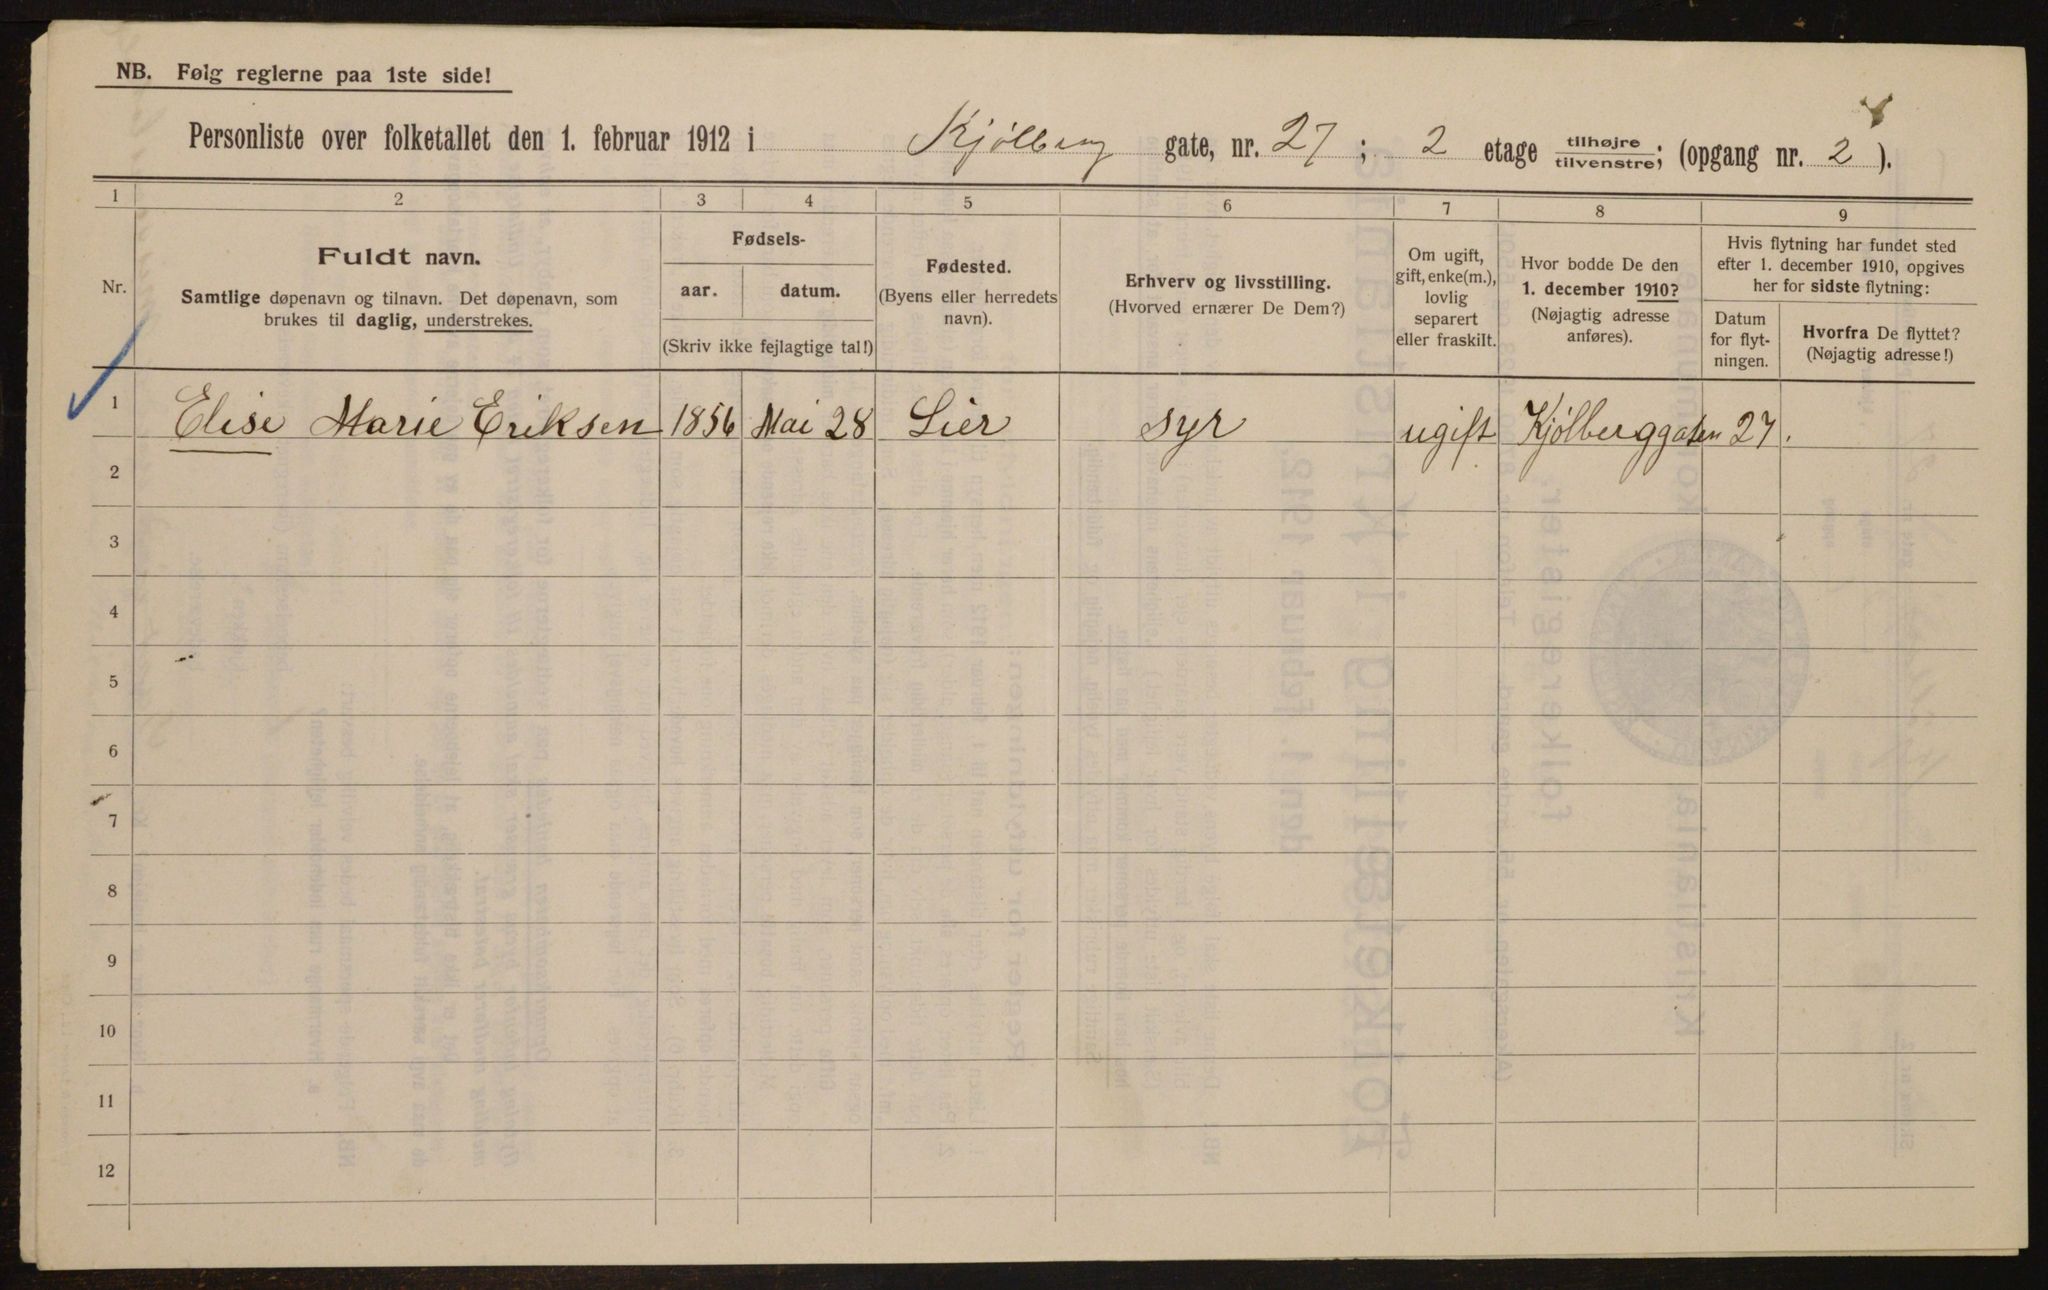 NB. Følg reglerne paa 1ste side!
Personliste over folketallet den 1. februar 1912 i Kjølberg gate, nr. 27; 2 etage tilhøjre/tilvenstre; (opgang nr. 2).
1 2 3 4 5 6 7 8 9
Nr.
Fuldt navn.
Samtlige døpenavn og tilnavn. Det døpenavn, som
brukes til daglig, understrekes.
Fødsels-
aar. datum.
(Skriv ikke fejlagtige tal!)
Fødested.
(Byens eller herredets
navn).
Erhverv og livsstilling.
(Hvorved ernærer De Dem?)
Om ugift,
gift, enke(m.),
lovlig
separert
eller fraskilt.
Hvor bodde De den
1. december 1910?
(Nøjagtig adresse
anføres).
Hvis flytning har fundet sted
efter 1. december 1910, opgives
her for sidste flytning:
Datum
for flyt-
ningen.
Hvorfra De flyttet?
(Nøjagtig adresse!)
1 Elise Marie Eriksen 1856 Mai 28 Lier syr ugift Kjølberggaten 27.
2
3
4
5
6
7
8
9
10
11
12